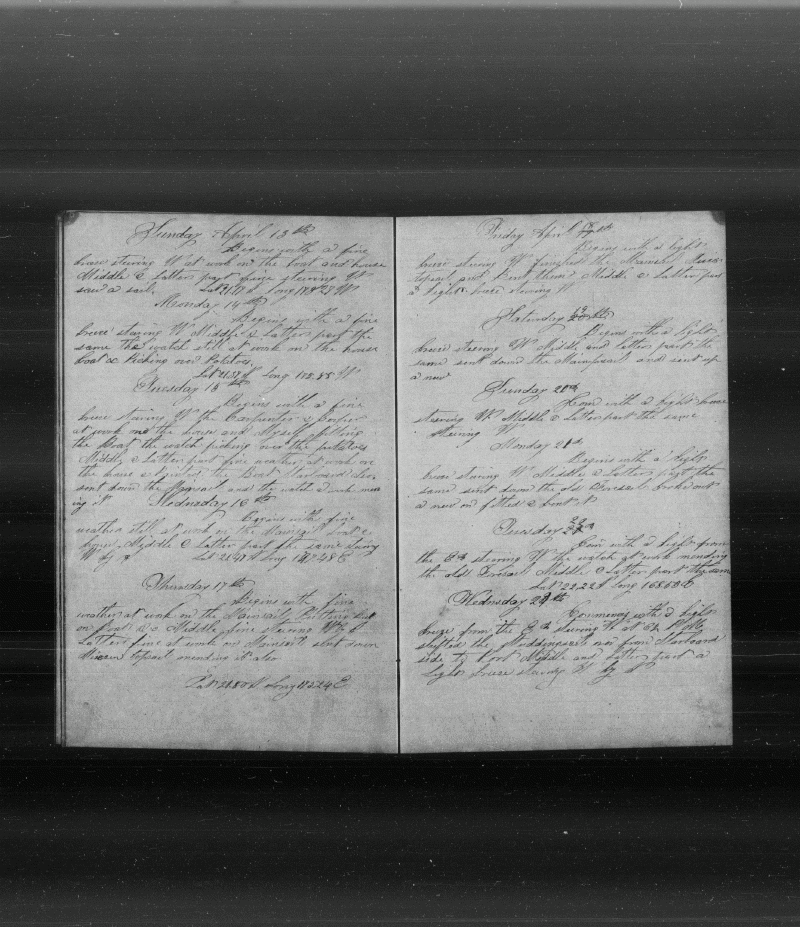 Sunday April 13th
Begins with a fine
breeze steering W at work on the boat and house
Middle & Latter part fine steering W
saw a sail. Lat 21.17 N Long 178.27 W
Monday 14th
Begins with a fine
breeze steering W Middle & Latter part the
same the watch still at work on the house
boat & Picking over Potatoes
Lat 21.37 N Long 178.85 W
Tuesday 15th
Begins with a fine
breeze steering W the Carpenter & Cooper
at work on the house and Myself fitting
the Boat the watch picking over the potatoes
Middle & Latter part fine weather at work on
the house & the Boat Starboard also
sent down the Mainsail and the watch at work mend
ing it Wednesday 16th
Begins with fine
weather still at work on the Mainsail boat &
house Middle & Latter part the same steering
W by N Lat 21.47 N Long
Thursday 17th
Begins with fine
weather at work on the Mainsail Putting
on Boat &c Middle fine steering W by N
Latter fine at work on Mainsail sent down
Mizen topsail mending it also
Lat 21.87 N Long 172.24 E
Friday April 18th
Begins with a light
breeze steering W finished the Mainsail
topsail and Bent them Middle & Latter part
a light breeze steering W
Saturday
Begins with a light
breeze steering W Middle and Latter part the
same sent down the Mainsail and sent up
a new
Sunday 20th
Com with a light breeze
steering W Middle & Latter part the same
steering W
Monday 21st
Begins with a light
breeze steering W Middle & Latter part the
same sent down the old Foresail broke out
a new on fitted & bent it
Tuesday 22
Com with a light from
the Ed steering W the watch at work mending
the old Foresail Middle & Latter part the same
Lat 22,22 N Long 168.68 E
Wednesday
Commences with a light
breeze from the Ed steering W at
shifted the over from Starboard
side to Port Middle and Latter part a
light breeze steering W by N